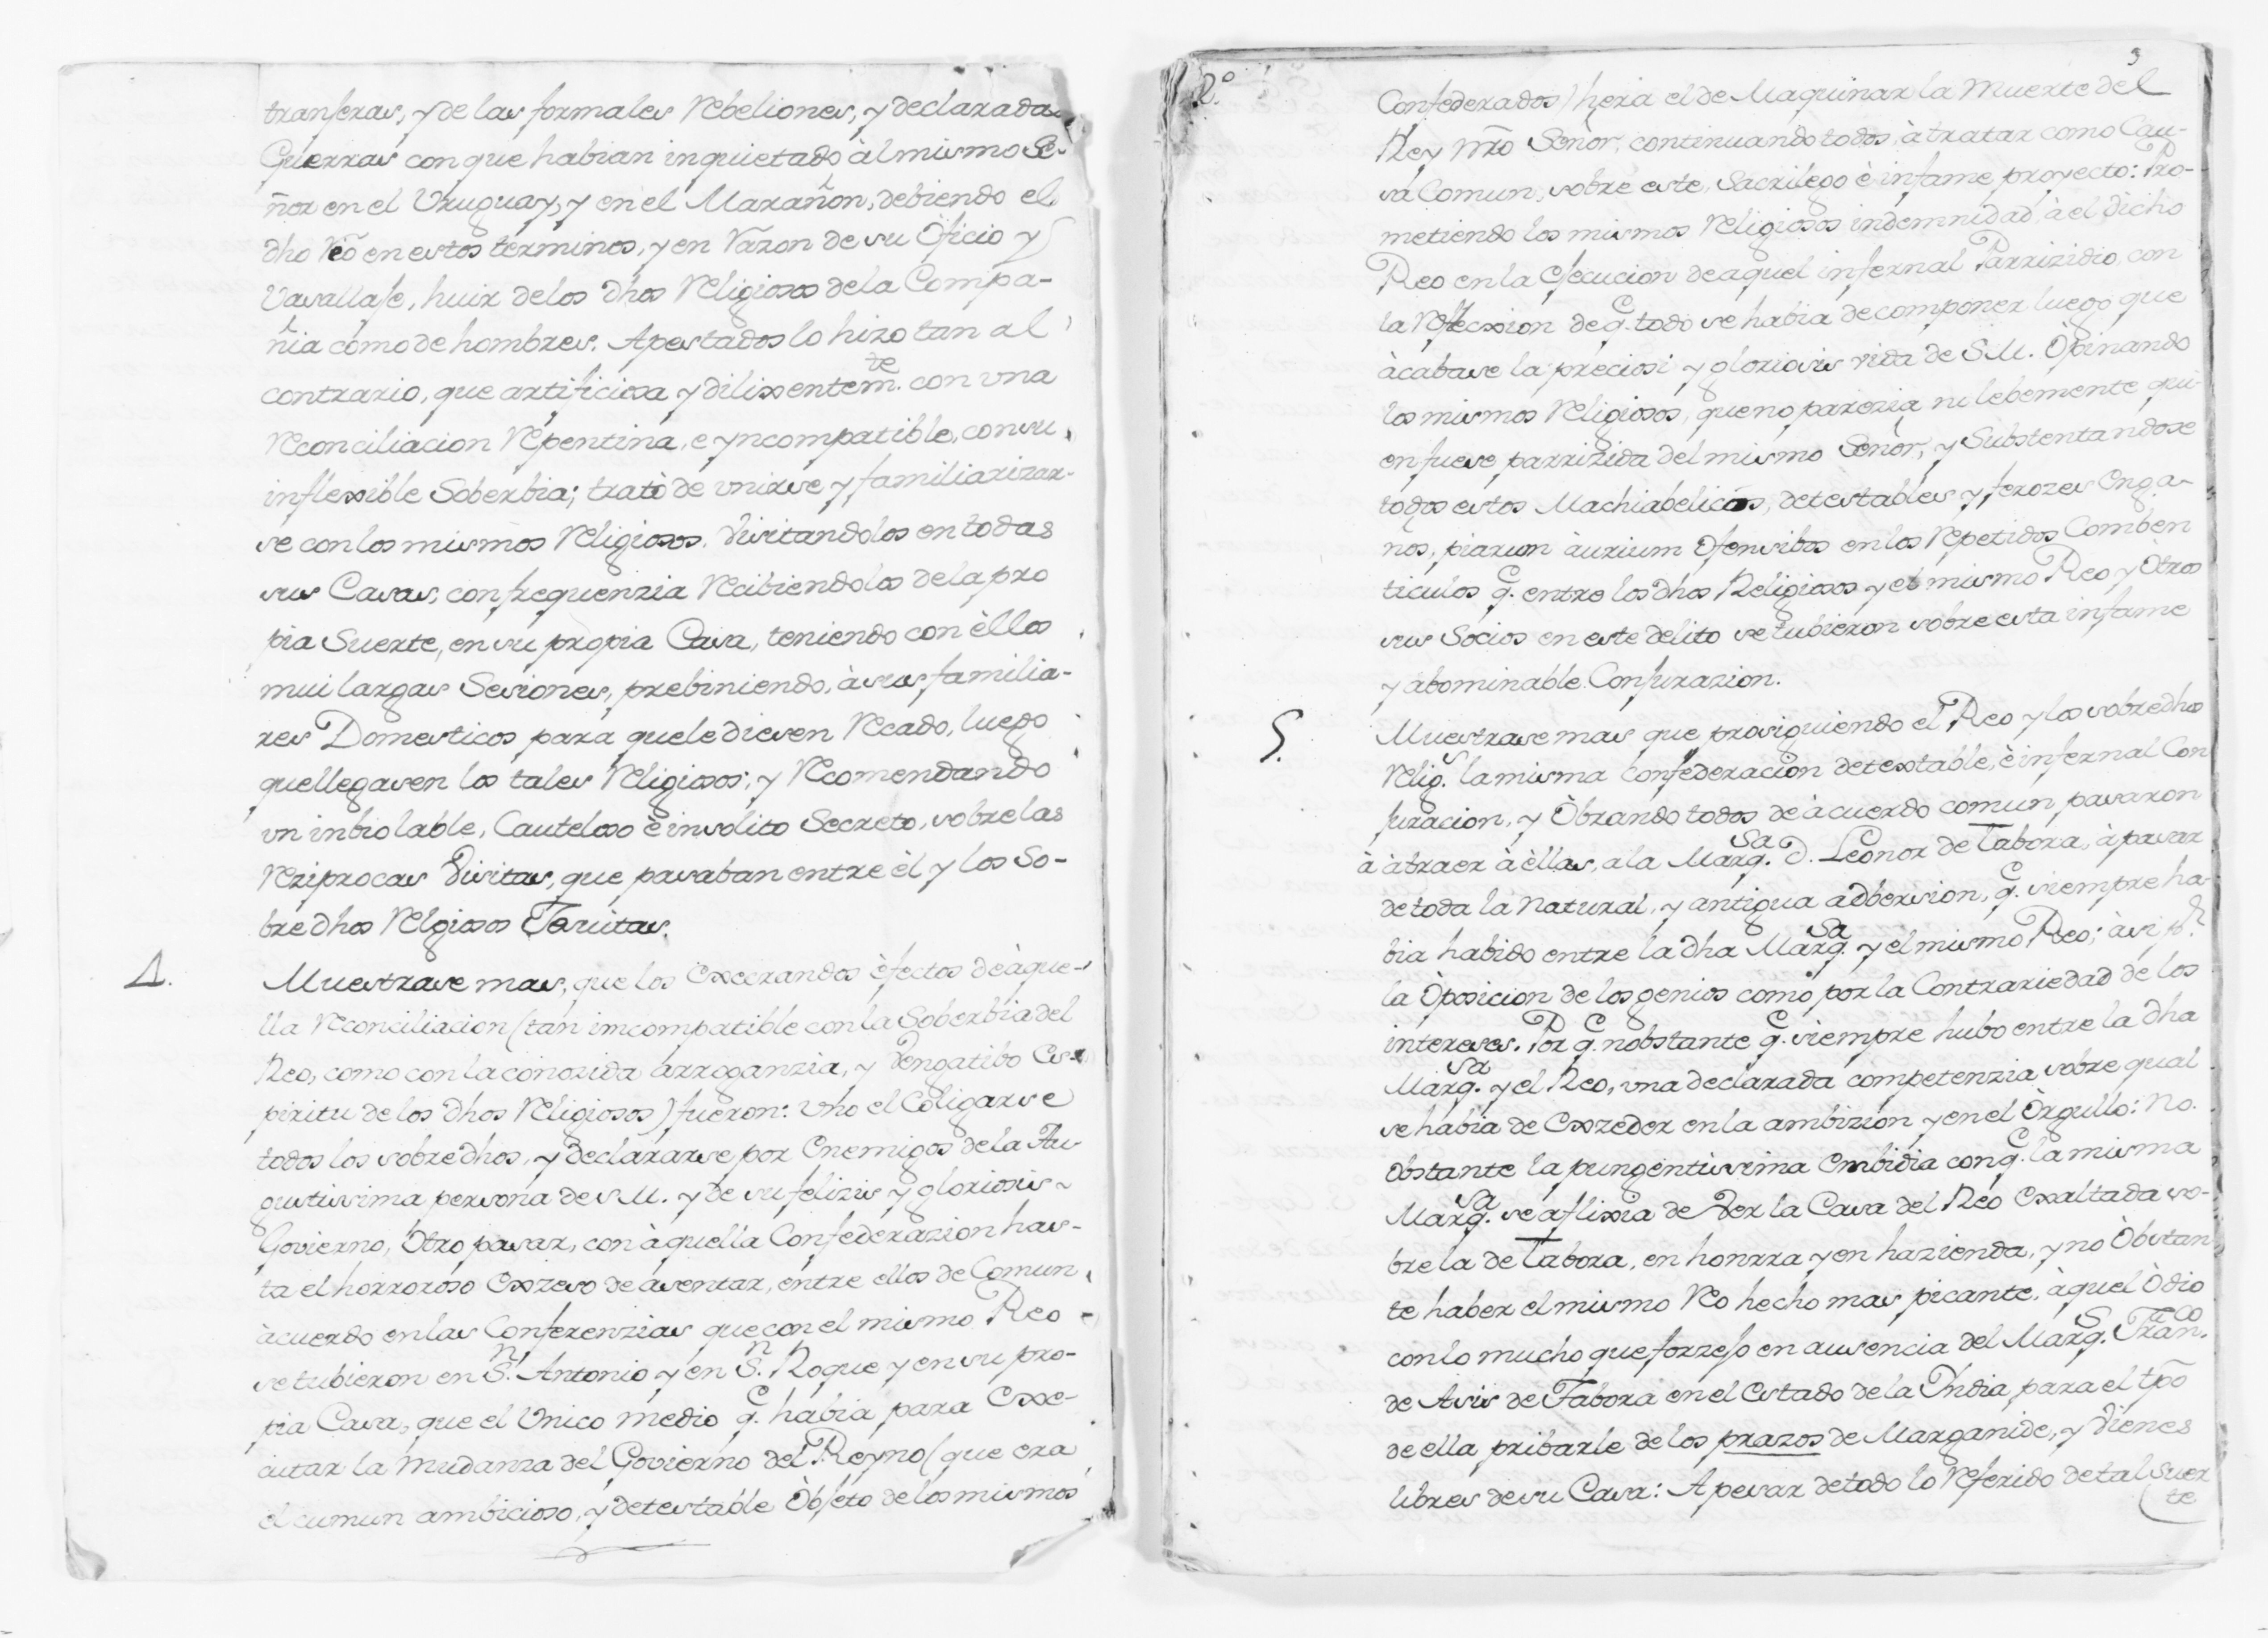 tranferas, y de las formales Rebeliones, y declaradas
Guerras con que habian inquietado àl mismo Se-
ñor en el Uruguay, y en el Marañon, debiendo el
dho Reo en estos terminos, y en Razon de su Oficio y
Vasallaje, huir de los dhos Religiosos de la Compa-
ñia como de hombres. Apestados lo hizo tan al
contrario, que artificiosa y dilixentemte. con vna
Reconciliacion Repentina, e yncompatible, con su
inflexible Soberbia; tratò de vnirse y familiarizar-
se con los mismos Religiosos. Visitandolos en todas
sus Casas, con frequenzia Recibiendolos de la pro
pia Suerte, en su propia Casa, teniendo con èllos
mui largas Sesiones, prebiniendo, à sus familia-
res Domesticos para que le diesen Recado, luego
que llegasen los tales Religiosos; y Recomendando
vn inbiolable, Cauteloso è insolito Secreto, sobre las
Reziprocas Visitas, que pasaban entre èl y los So-
bredhos Relgiosos Jesuitas.
4. Muestrase mas, que los Execrandos èfectos de àque-
lla Reconciliacion (tan imcompatible con la Soberbia del
Reo, como con la conozida arroganzia, y Vengatibo Es-
piritu de los dhos Religiosos) fueron: Vno el Coligarse
todos los sobredhos, y declararse por Enemigos de la Au-
gustissima persona de S.M. y de su felizis y gloriosis-
Govierno, Otro pasar, con àquella Confederazion has-
ta el horroroso Exzeso de asentar, entre ellos de Comun
àcuerdo en las Conferenzias que con el mismo Reo -
se tubieron en Sn. Antonio y en Sn. Roque y en su pro-
pia Casa, que el Vnico medio q. habia para Exe-
cutar la Mudanza del Govierno del Reyno (que era
el cumun ambicioso, y detestable Objeto de los mismos
3
2.º
Confederados) hera el de Maquinar la Muerte del
Rey Nro Señor, continuando todos, à tratar como Cau-
sa Comun, sobre este, Sacrilego è infame proyecto: Pro-
metiendo los mismos Religiosos indemnidad à el dicho
Reo en la Ejecucion de aquel infernal Parrizidio, con
la Reflecxion de q. todo se habia de componer luego que
àcabase la preciosi y gloriosis vida de S.M. Opinando
los mismos Religiosos, que no parezia ni lebemente qui-
en fuese parrizida del mismo Señor, y Substentandose
todos estos Machiabelicos, detestables y ferozes Enga-
ños, piarum àurium Ofensibos en los Repetidos Comben
ticulos q. entre los dhos Religiosos y el mismo Reo y Otros
sus Socios en este delito se tubieron sobre esta infame
y abominable Conjurazion.
5. Muestrase mas que prosiguiendo el Reo y los sobredhos
Religs. la misma Confederacion detextable, è infernal Con
juracion, y Obrando todos de àcuerdo comun pasaron
à àtraer à èllas, a la Marqsa. D. Leonor de Tabora, à pasar
de toda la natural, y antigua adbersion, q. siempre ha-
bia habido entre la dha Marqsa. y el mismo Reo; àsi pr.
la Oposicion de los genios como por la Contrariedad de los
intereses. Por q. nobstante q. siempre hubo entre la dha
Marqsa. y el Reo, vna declarada competenzia sobre qual
se habia de Exzeder en la ambizion y en el Orgullo: No
obstante la pungentissima Embidia con q. la misma
Marqsa. se aflixia de Ver la Casa del Reo Exaltada so-
bre la de Tabora, en honrra y en hazienda, y no Obstan
te haber el mismo Reo hecho mas picante, àquel Odio
con lo mucho que forzejo en ausencia del Marqs. Franco.
de Asis de Tabora en el Estado de la Yndia, para el tpo
de ella pribarle de los prazos de Marganide, y Vienes
libres de su Casa: A pesar de todo lo Referido de tal Suer
te